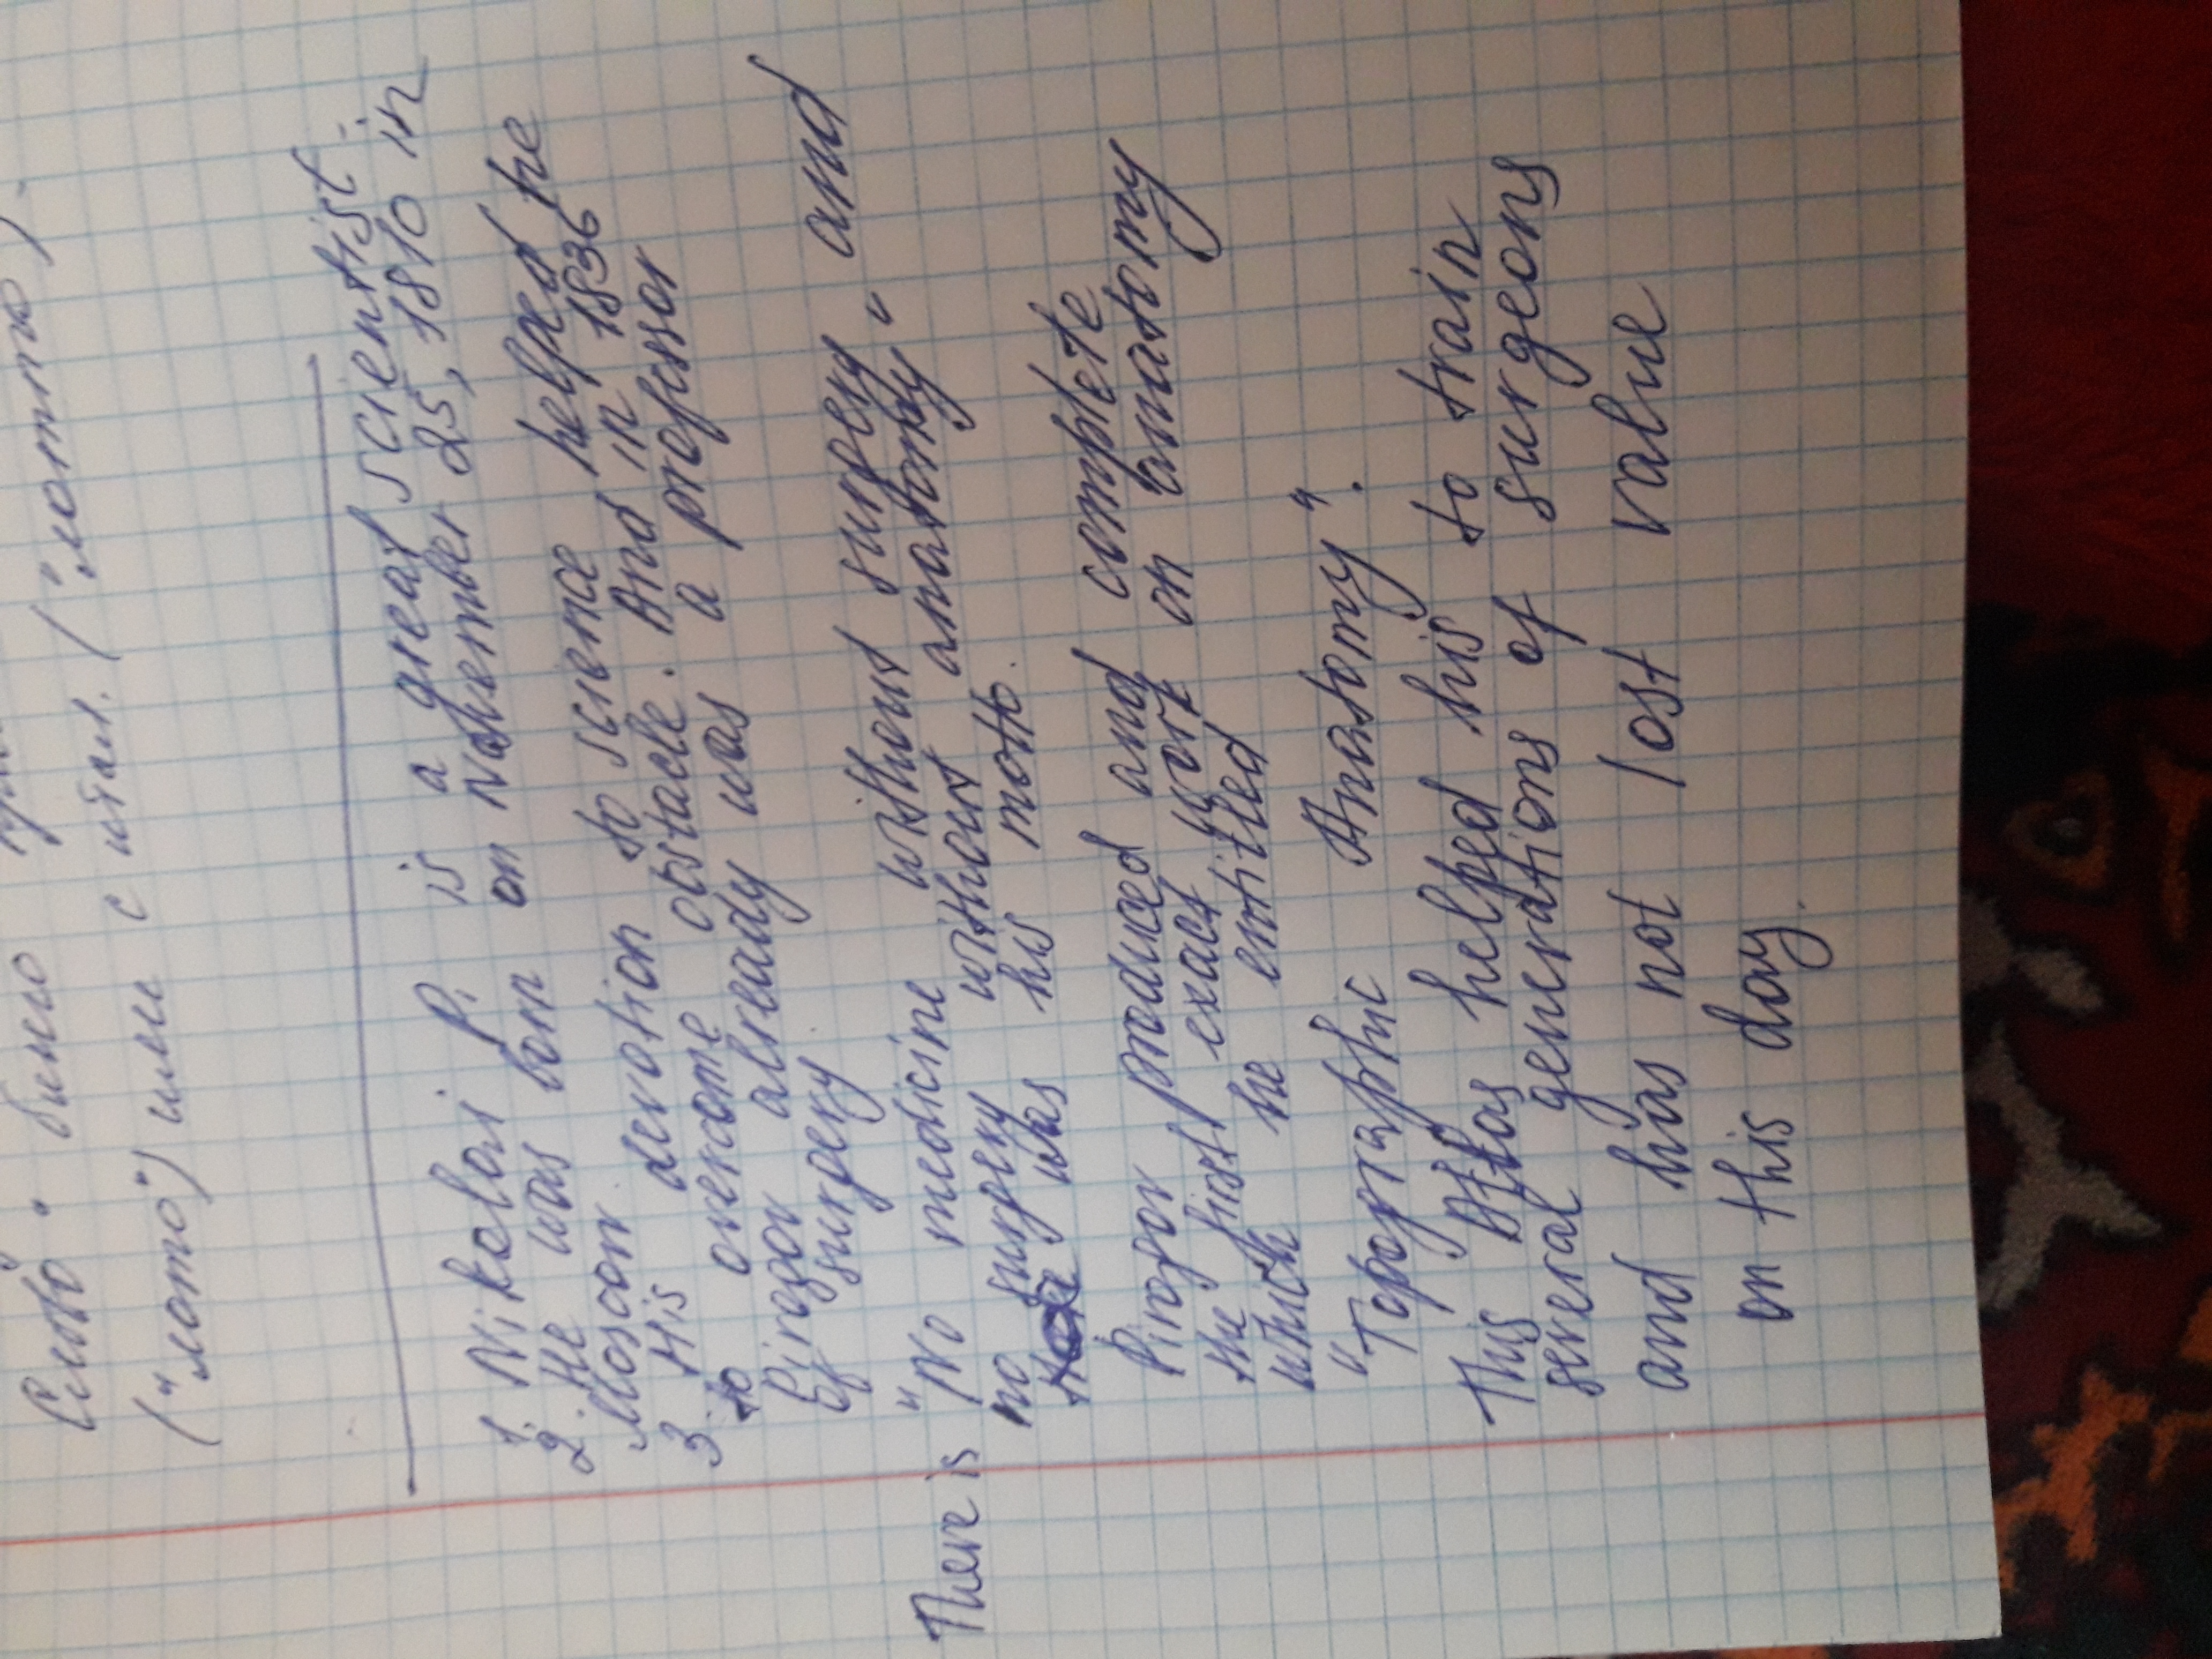 Слово " было
("лото") или с итал. ("лотто").
1. Nikolai P. is a great scientist.
2. He was born on November 25, 1810 in
Moscow
3. His devotion to science helped he
to overcome obstacle. And in 1836
Pirogov already was a professor
of surgery
There is "No medicine without surgery and
no surgery without anatomy"
was his motto.
Pirogov produced and complete
the first exact work on anatomy
which he entitled
"Topographic Anatomy".
This Atlas helped his to train
several generations of surgeons
and has not lost value
on this day.